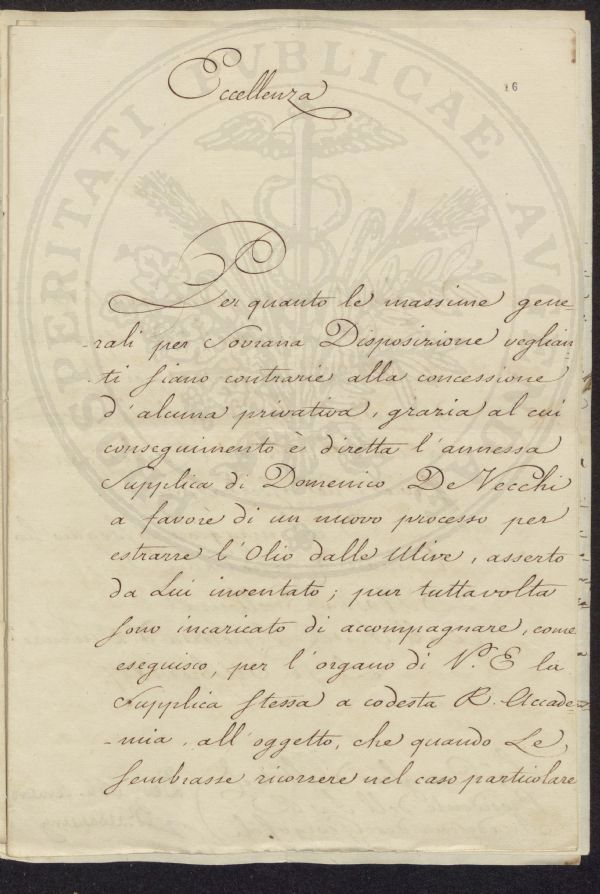 16
Eccellenza
Per quanto le massime gene-
-rali per Sovrana Disposizione veglian
-ti siano contrarie alla concessione
d'alcuna privativa, grazia al cui
conseguimento è diretta l'annessa
Supplica di Domenico De Vecchi
a favore di un nuovo processo per
estrarre l'Olio dalle Ulive, asserto
da Lui inventato; pur tuttavolta
sono incaricato di accompagnare, come
eseguisco, per l'organo di V. E la
Supplica stessa a codesta R. Accade-
-mia, all'oggetto, che quando Le
sembrasse ricorrere nel caso particolare
PROSPERITATI PUBLICAE AUGENDAE